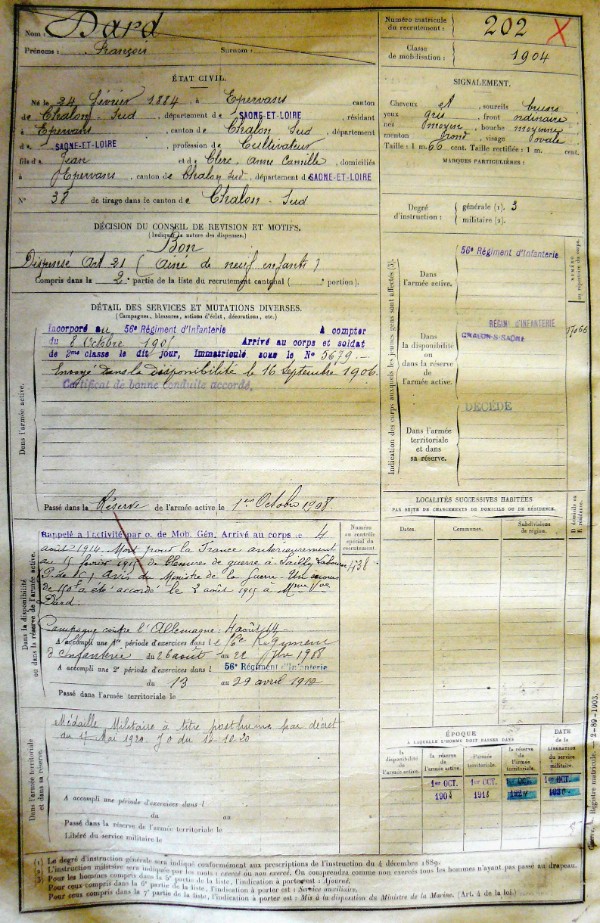 Nom : Dard
Prénoms : François Surnom :
Numéro matricule du recrutement : 202
Classe de mobilisation : 1904
ÉTAT CIVIL.
Né le 24 février 1884 à Epervans canton
de Chalon Sud, département de SAONE-ET-LOIRE, résidant
à Epervans, canton de Chalon Sud, département
de SAONE-ET-LOIRE, profession de Cultivateur
fils de Jean et de Clerc Anne Camille, domiciliés
à Epervans canton de Chalon Sud, département de SAONE-ET-LOIRE
N° 38 de tirage dans le canton de Chalon-Sud
SIGNALEMENT.
Cheveux sourcils bruns
yeux gris front ordinaire
nez moyen bouche moyenne
menton rond visage ovale
Taille : 1 m. 66 cent. Taille rectifiée : 1 m. cent.
MARQUES PARTICULIÈRES :
Degré d'instruction : générale (1). 3
militaire (2).
DÉCISION DU CONSEIL DE REVISION ET MOTIFS.
(Indiquer la nature des dispenses.)
Bon
Dispensé Art 21 (Ainé de neuf enfants)
Compris dans la 2e partie de la liste du recrutement cantonal ( portion).
DÉTAIL DES SERVICES ET MUTATIONS DIVERSES.
(Campagnes, blessures, actions d'éclat, décorations, etc.)
Dans l'armée active.
Incorporé au 56e Régiment d'Infanterie À compter
du 8 Octobre 1905 Arrivé au corps et soldat
de 2me classe le dit jour, Immatriculé sous le N° 5679.
Envoyé dans la disponibilité le 16 Septembre 1906.
Certificat de bonne conduite accordé.
Passé dans la Réserve de l'armée active le 1er Octobre 1908
Indication des corps auxquels les jeunes gens sont affectés (3).
Dans l'armée active.
56e Régiment d'Infanterie
Dans la disponibilité ou dans la réserve de l'armée active.
RÉGIMENT D'INFANTERIE
CHALON-S-SAONE
DÉCÉDÉ
Dans l'armée territoriale et dans sa réserve.
Dans la disponibilité ou dans la réserve de l'armée active.
Rappelé à l'activité par o. de Mob. Gén. Arrivé au corps le 4
août 1914 Mort pour la France antérieurement
au 15 février 1915 de blessures de guerre à Sailly
(P. de C.) Avis du Ministre de la Guerre. Un secours
de 150f a été accordé le 2 août 1915 à Mme Vve
Dard.
Campagne contre l'Allemagne : 4 août 14
A accompli une 1re période d'exercices dans le 56e Régiment
d'infanterie du 26 août au 22 1908
A accompli une 2e période d'exercices dans l 56e Régiment d'Infanterie
du 13 au 29 avril 1912
Passé dans l'armée territoriale le
Numéro au contrôle spécial du recrutement
438
LOCALITÉS SUCCESSIVES HABITÉES
PAR SUITE DE CHANGEMENTS DE DOMICILE OU DE RÉSIDENCE.
Dates. Communes. Subdivisions de région. D domicile ou R résidence.
Dans l'armée territoriale et dans sa réserve.
Médaille Militaire à titre posthume par décret
du 17 Mai 1920. J O du 12.10.20
A accompli une période d'exercices dans l
du au
Passé dans la réserve de l'armée territoriale le
Libéré du service militaire le
ÉPOQUE
À LAQUELLE L'HOMME DOIT PASSER DANS
la disponibilité de l'armée active. la réserve de l'armée active. l'armée territoriale. la réserve de l'armée territoriale.
DATE de la LIBÉRATION du service militaire.
1er OCT. 1er OCT. 1er OCT. 1er OCT.
1908 1918
(1) Le degré d'instruction générale sera indiqué conformément aux prescriptions de l'instruction du 4 décembre 1889.
(2) L'instruction militaire sera indiquée par les mots : exercé ou non exercé. On comprendra comme non exercés tous les hommes n'ayant pas passé au drapeau.
(3) Pour les hommes compris dans la 5e partie de la liste, l'indication à porter est : Ajourné.
Pour ceux compris dans la 6e partie de la liste, l'indication à porter est : Service auxiliaire.
Pour ceux compris dans la 7e partie de la liste, l'indication à porter est : Mis à la disposition du Ministre de la Marine. (Art. 4 de la loi.)
Registre matricule. — 2-82-1903.